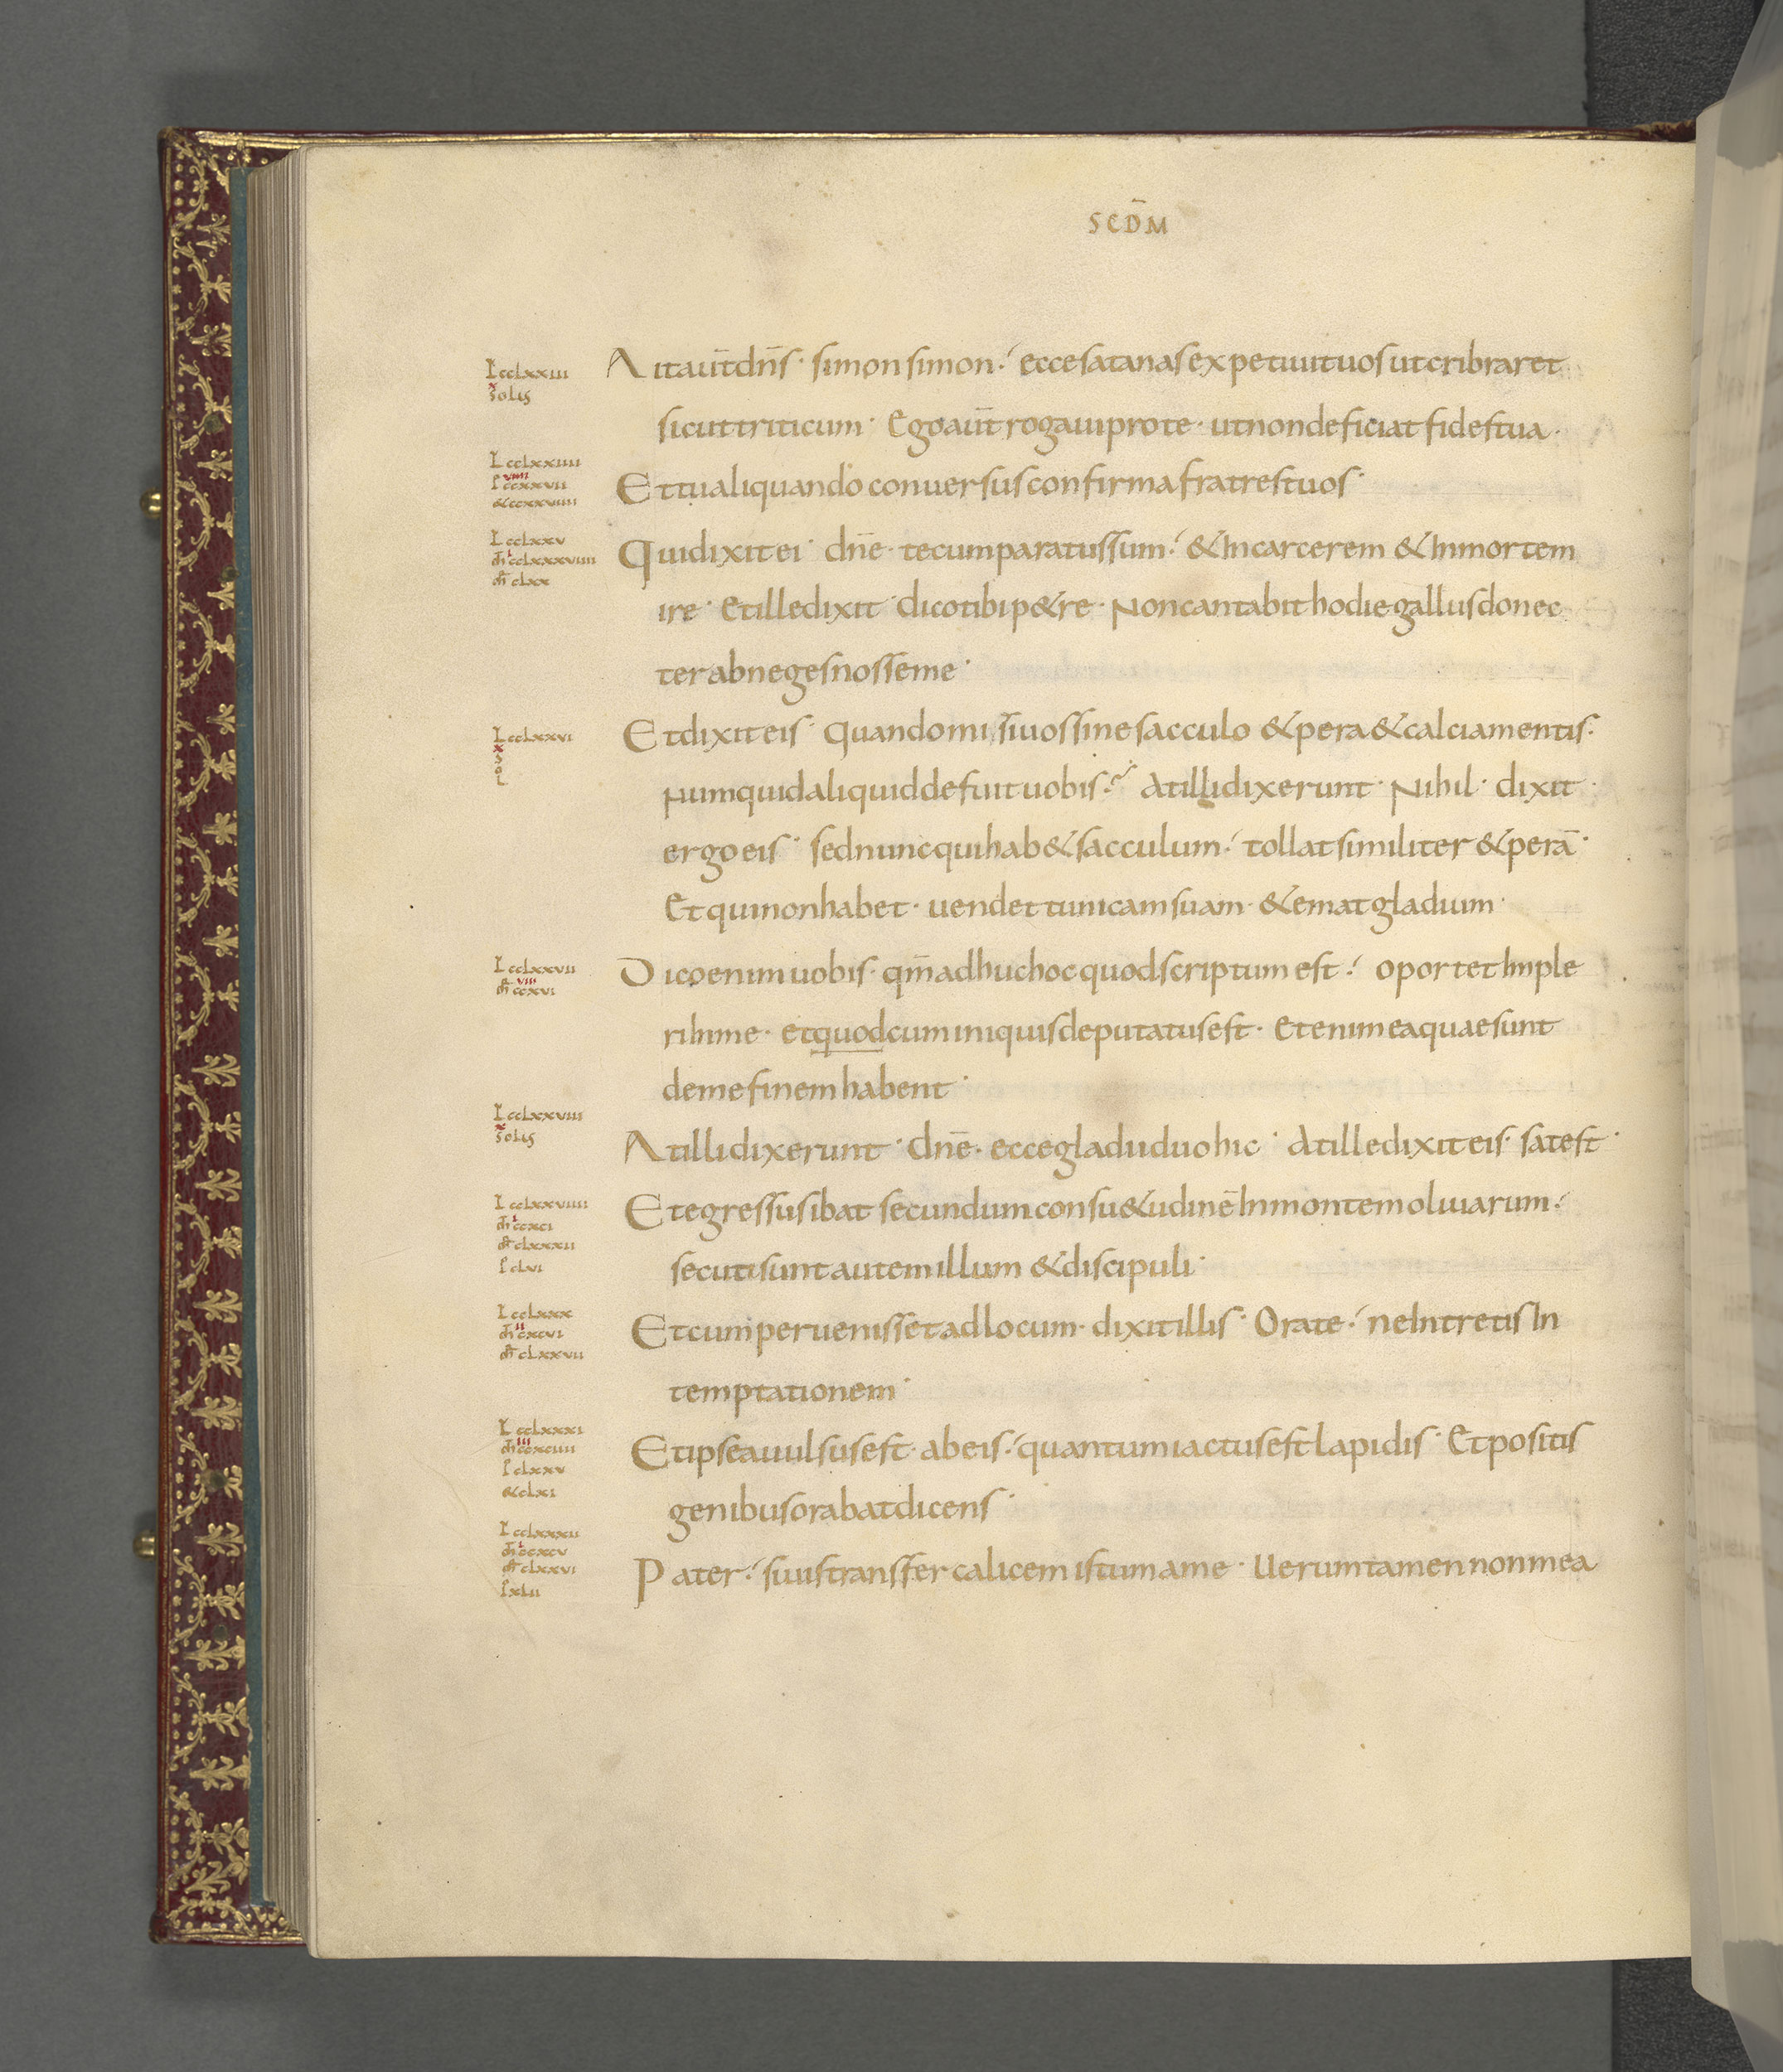 SCD̄M
L cclxxiii
x
solis
Aitaut̄dn̄s· simonsimon· eccesatanasexpetiuituosutcribraret
sicuttriticum· Egoaut̄rogauiprote· utnondeficiatfidestua·
L cclxxiiii
viiii
I ccxxvii
&ccxxviiii
Ettualiquandoconuersusconfirmafratrestuos·
L cclxxv
m̄ cclxxxviiii
m̄ clxx
Quidixitei· dn̄e· tecumparatussum· &Incarcerem &Inmortem
ire· Etilledixit· dicotibip&re· Noncantabithodiegallusdonec
terabnegesnosseme·
L cclxxvi
x
sol
Etdixiteis· quandomisiuossinesacculo &pera&calciamentis·
Numquidaliquiddefuituobis· Atillidixerunt· Nihil· dixit·
ergoeis· sednuncquihab&sacculum· tollatsimiliter &perā·
Etquinonhabet· uendettunicamsuam· &ematgladium·
L cclxxvii
viii
m̄ ccxvi
Dicoenimuobis· qm̄adhuchocquodscriptumest· oportetImple
riInme· etquodcuminiquisdeputatusest· Etenimeaquaesunt
demefinemhabent·
L cclxxviii
x
solis
Atillidixerunt· dn̄e· eccegladiiduohic· Atilledixiteis· satest·
L cclxxviiii
m̄ ccxci
m̄ clxxxii
I clvi
Etegressusibat secundumconsu&udinēInmontemoliuarum·
secutisuntautemillum &discipuli·
L cclxxx
ii
m̄ cxcvi
m̄ clxxvii
Etcumperuenissetadlocum· dixitillis· Orate· neIntretisIn
temptationem·
L cclxxxi
m̄ ccxciiii
I clxxv
&clxi
Etipseauulsusest· abeis· quantumiactusestlapidis· Etpositis
genibusorabatdicens·
L cclxxxii
m̄ ccxcv
m̄ clxxvi
I xlii
Pater· siuistransfercalicemistumame· Uerumtamennonmea